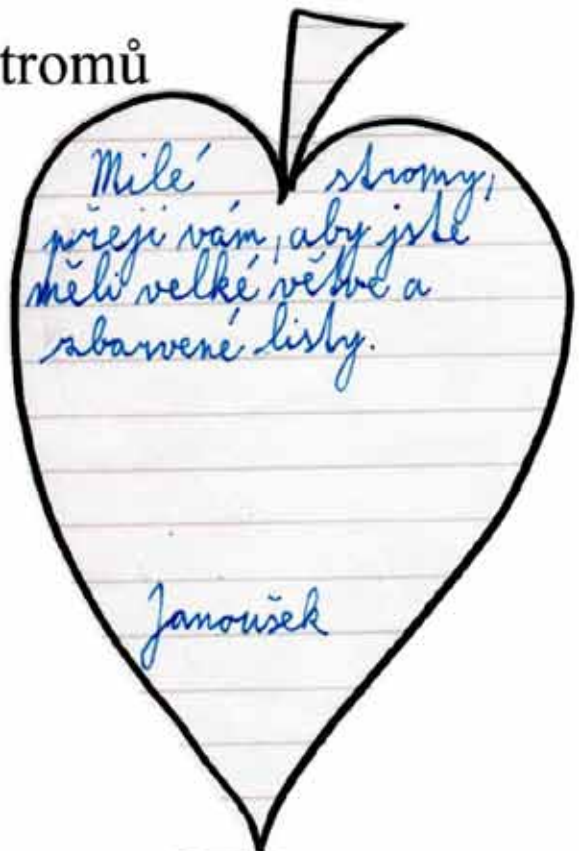 tromů
Milé stromy,
přeji vám, aby jste
měli velké větve a
zbarvené listy.
Janoušek